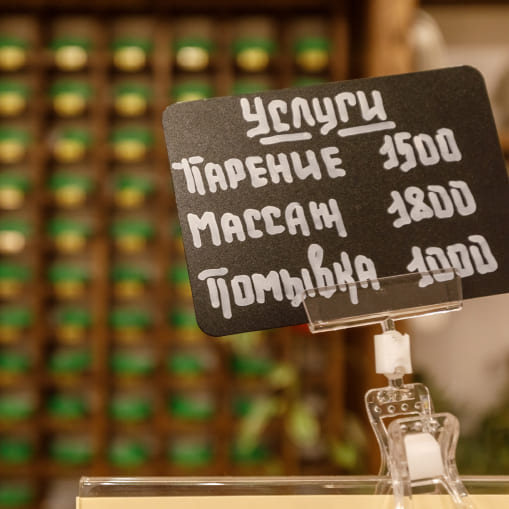 Услуги
Парение 1500
Массаж 1800
Помывка 1000